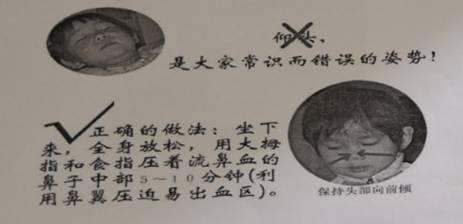 仰头、
是大家常识而错误的姿势！
正确的做法：坐下
来，全身放松，用大拇
指和食指压着流鼻血的
鼻子中部5～10分钟(利
用鼻翼压迫易出血区)。
保持头部向前倾